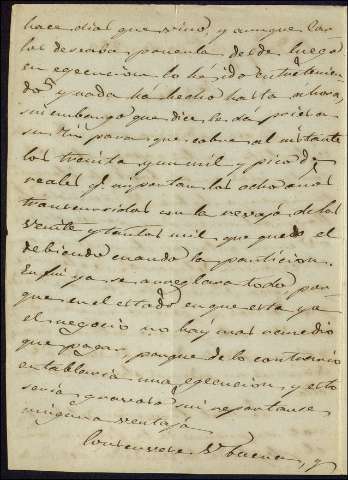 hace dias que vino, y aunque Car-
los deseaba ponerla desde luego
en egecucion lo há ido entretenien-
do, y nada há hecho hasta ahora,
sin embargo que dice le da priesa
su Tio para que cobre al instante
los treinta y un mil y pico de
reales q.e importan los ocho años
transcurridos con la revaja de los
veinte y tantos mil que quedó el
debiendo cuando la particion.
En fin ya se arreglara todo por-
que en el estado en que esta ya
el negocio no hay mas remedio
que pagar, porque de lo contrario
entablaria una egecucion, y esto
seria gravoso sin reportarse
ninguna ventaja.
Conservese V. buena, y